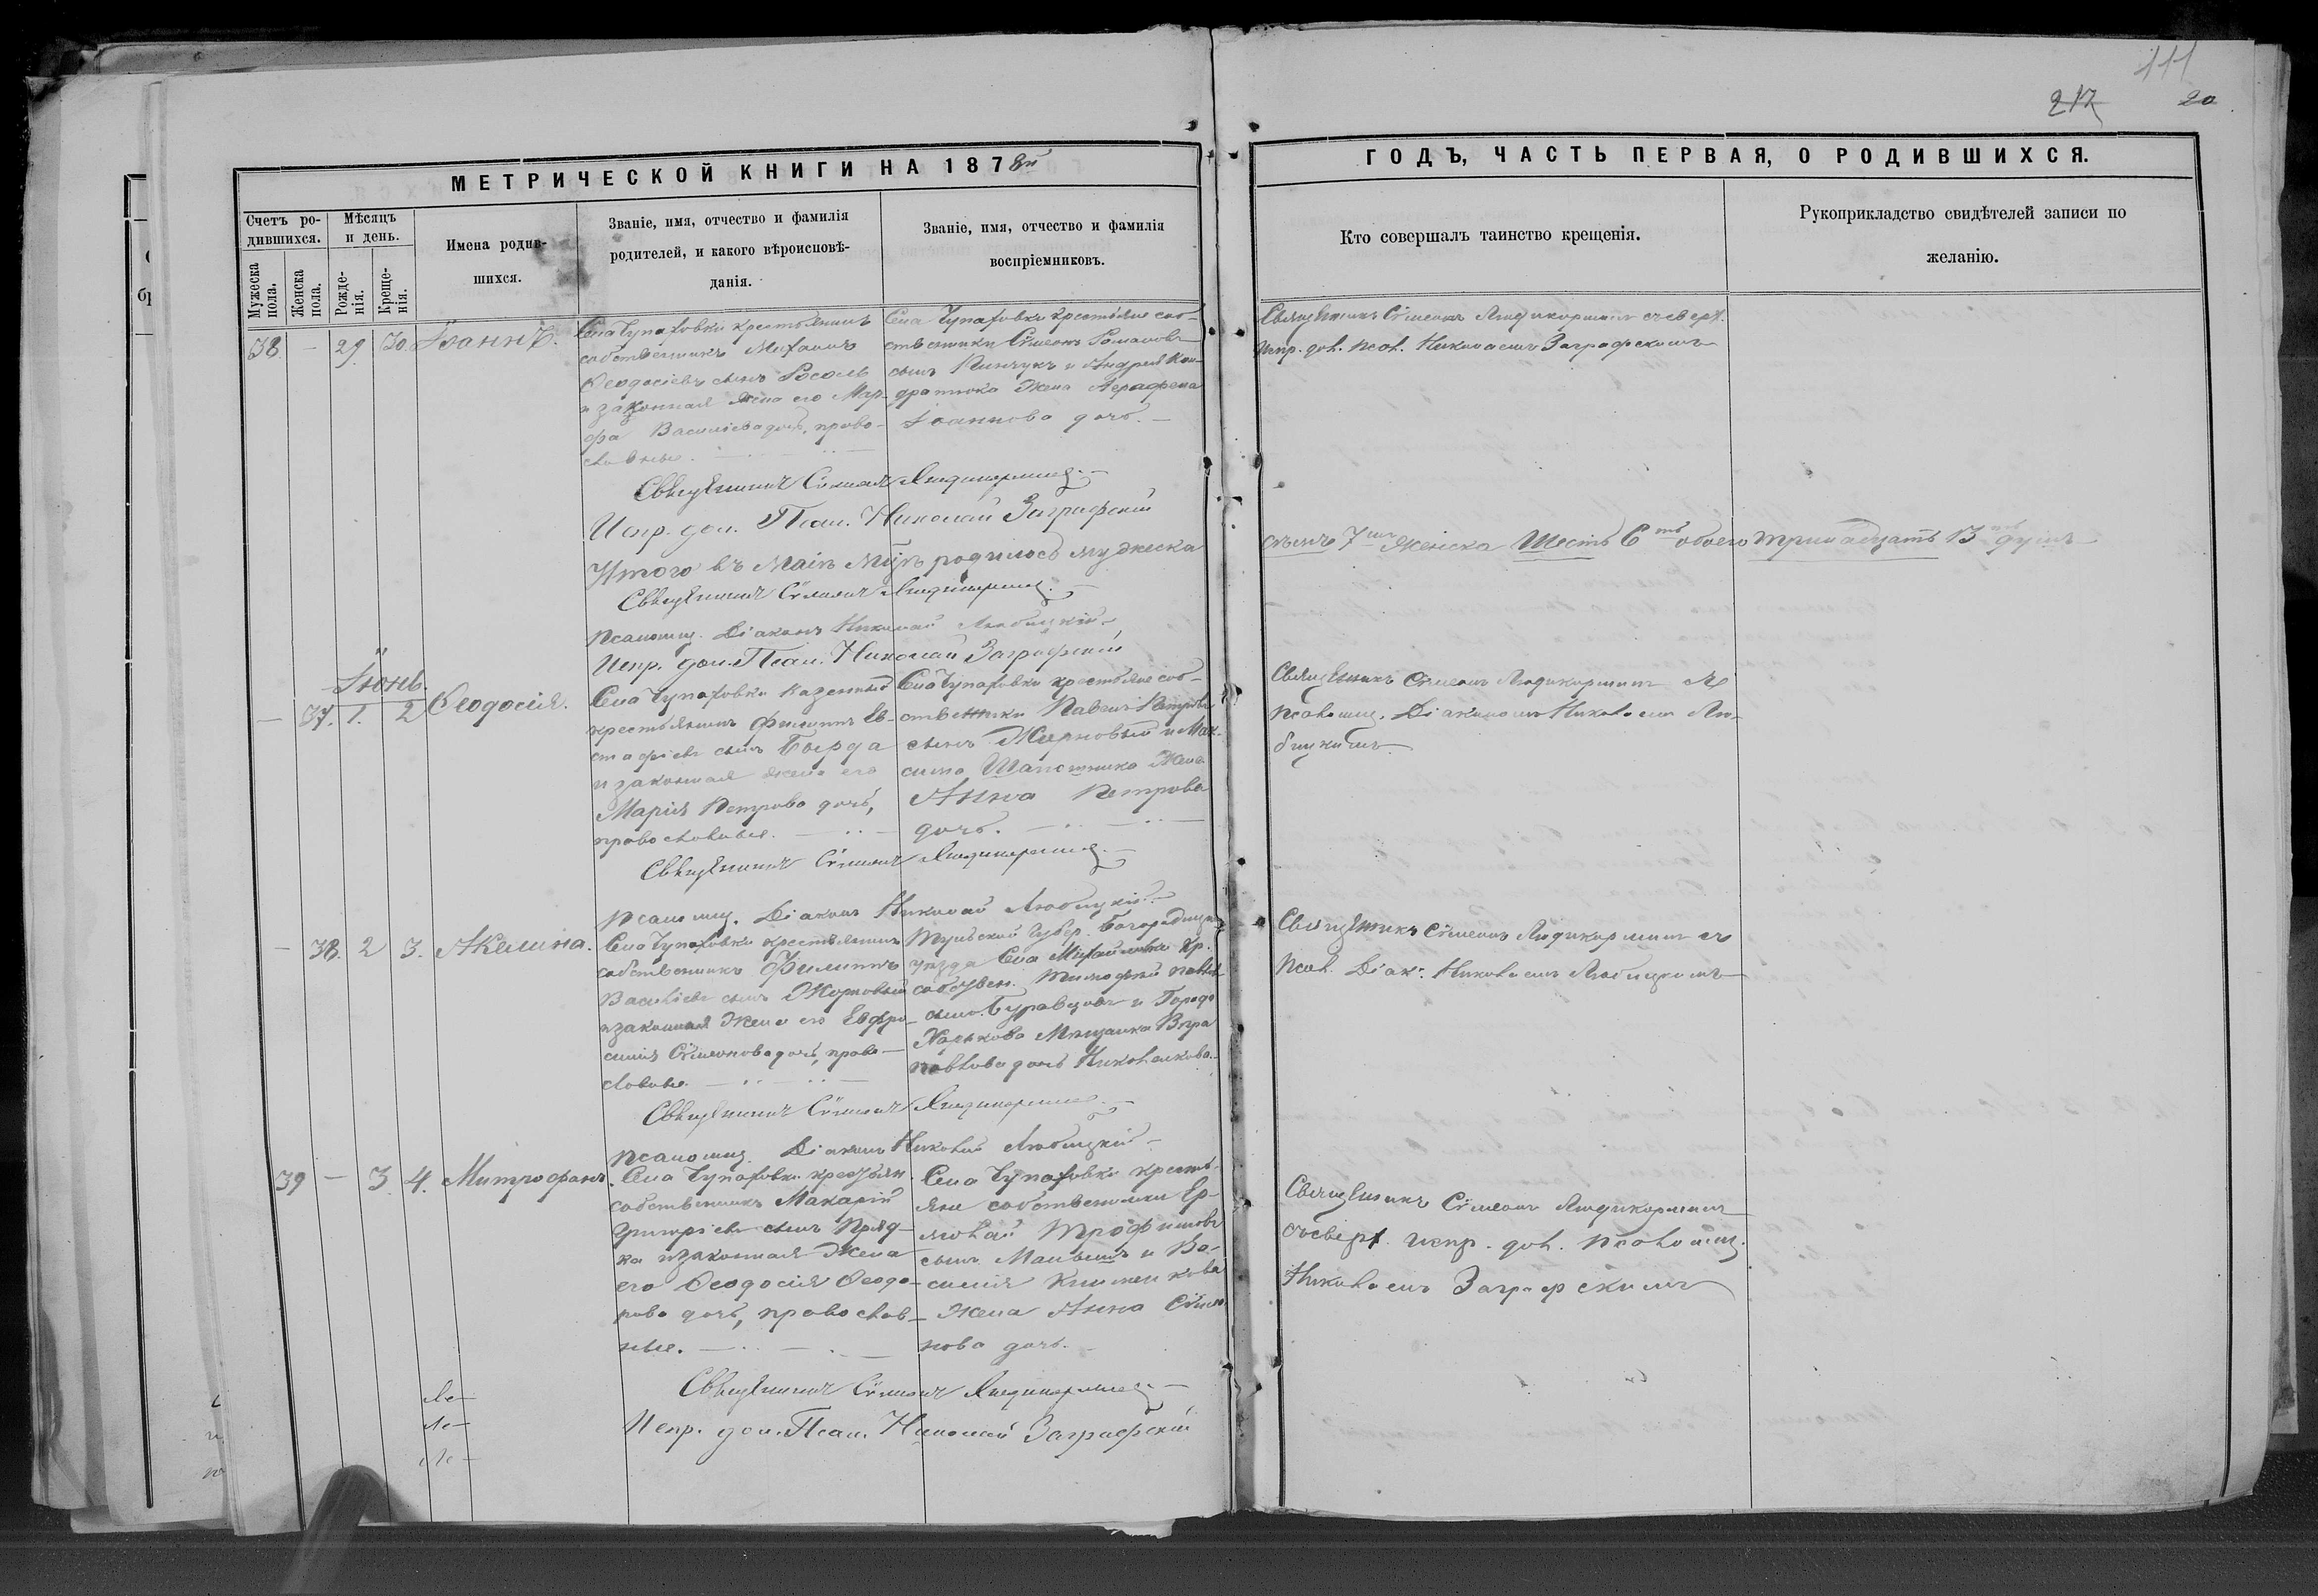 111
217 20
МЕТРИЧЕСКОЙ КНИГИ НА 1878й
ГОДЪ, ЧАСТЬ ПЕРВАЯ, О РОДИВШИХСЯ.
Счетъ ро-
дившихся.
Мужеска
пола.
Женска
пола.
Мѣсяцъ
и день.
Рожде-
нія.
Креще-
нія.
Имена родив-
шихся.
Званіе, имя, отчество и фамилія
родителей, и какого вѣроисповѣ-
данія.
Званіе, имя, отчество и фамилія
воспріемниковъ.
Кто совершалъ таинство крещенія.
Рукоприкладство свидѣтелей записи по
желанію.
38 — 29 30. Іоаннъ.
Села Чупаховки крестьянинъ
собственникъ Михаилъ
Ѳеодосіевъ сынъ
и законная жена его Мар-
фа Василіева дочь, право-
славные.
Села Чупаховки крестьяне соб-
ственники Сѵмеонъ Романовъ
сынъ Пинчукъ и Андрея Кон-
дратюка жена Аграфена
Іоаннова дочь.
Священникъ Сѵмеонъ съ сверх.
испр. дол. псал. Николаемъ Заграфскимъ
Священникъ Сѵмеонъ
Испр. дол. Псал. Николай Заграфскій
Итого въ Маіѣ мцѣ родилось мужеска
семь 7мь женска шесть 6ть обоего тринадцать 13ть душъ
Священникъ Сѵмеонъ
Псаломщ. Діаконъ Николай Любицкій
Испр. дол. Псал. Николай Заграфскій
Іюнь.
— 37. 1. 2 Ѳеодосія.
Села Чупаховки казенный
крестьянинъ Филиппъ Ев-
стафіевъ сынъ Бырда
и законная жена его
Марія Петрова дочь,
православные.
Села Чупаховки крестьяне соб-
ственники Павелъ Петровъ
сынъ Жерновый и Мак-
сима Шапошника жена
Анна Петрова
дочь.
Священникъ Сѵмеонъ съ
псаломщ. Діакономъ Николаемъ Лю-
бицкимъ
Священникъ Сѵмеонъ
Псаломщ. Діаконъ Николай Любицкій
— 38. 2 3. Акелина.
Села Чупаховки крестьянинъ
собственникъ Филиппъ
Василіевъ сынъ Жерновый
и законная жена его Евфро-
синія Сѵмеонова дочь, право-
славные.
Тульской губер. Богородицк.
уѣзда Села Михайловки кр.
собствен. Тимоѳей Павловъ
сынъ Буравцовъ и Города
Харькова Мѣщанка Вѣра
Павлова дочь
Священникъ Сѵмеонъ съ
псал. Діак. Николаемъ Любицкимъ
Священникъ Сѵмеонъ
Псаломщ. Діаконъ Николай Любицкій
39 — 3. 4. Митрофанъ.
Села Чупаховки крестьян.
собственникъ Макарій
Димитріевъ сынъ Пряд-
ка и законная жена
его Ѳеодосія Ѳеодо-
рова дочь, православ-
ные.
Села Чупаховки кресть-
яне собственники Ер-
молай Трофимовъ
сынъ и Ва-
силія Клименкова
жена Анна Сѵмео-
нова дочь.
Священникъ Сѵмеонъ
съ сверх. испр. дол. псаломщ.
Николаемъ Заграфскимъ
Священникъ Сѵмеонъ
Испр. дол. Псал. Николай Заграфскій